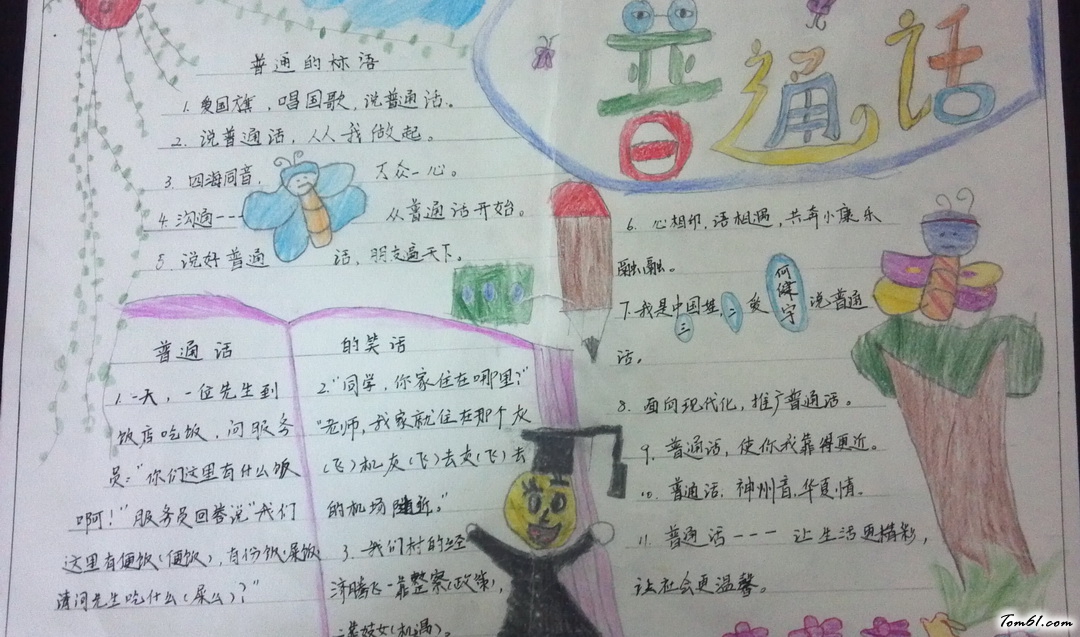 普通话
普通的标语
1. 爱国旗，唱国歌，说普通话。
2. 说普通话，从我做起。
3. 四海同音，万众一心。
4. 沟通---从普通话开始。
5. 说好普通话，朋友遍天下。
6. 心相印，语相通，共奔小康乐
融融。
7. 我是中国娃，爱说普通
话。
何健宇
二
三
8. 面向现代化，推广普通话。
9. 普通话，使你我靠得更近。
10. 普通话，神州音，华夏情。
11. 普通话---让生活更精彩，
让社会更温馨。
普通话的笑话
1. 一天，一位先生到
饭店吃饭，问服务
员："你们这里有什么饭
啊！"服务员回答说"我们
这里有便饭(便饭)，有份饭(屎饭
请问先生吃什么(屎么)？"
2. "同学，你家住在哪里？"
"老师，我家就住在那个灰
(飞)机灰(飞)去灰(飞)去
的机场附近。"
3. 一我们村的经
济腾飞一靠整察(政策)，
二靠妓女(机遇)。
Tom61.com